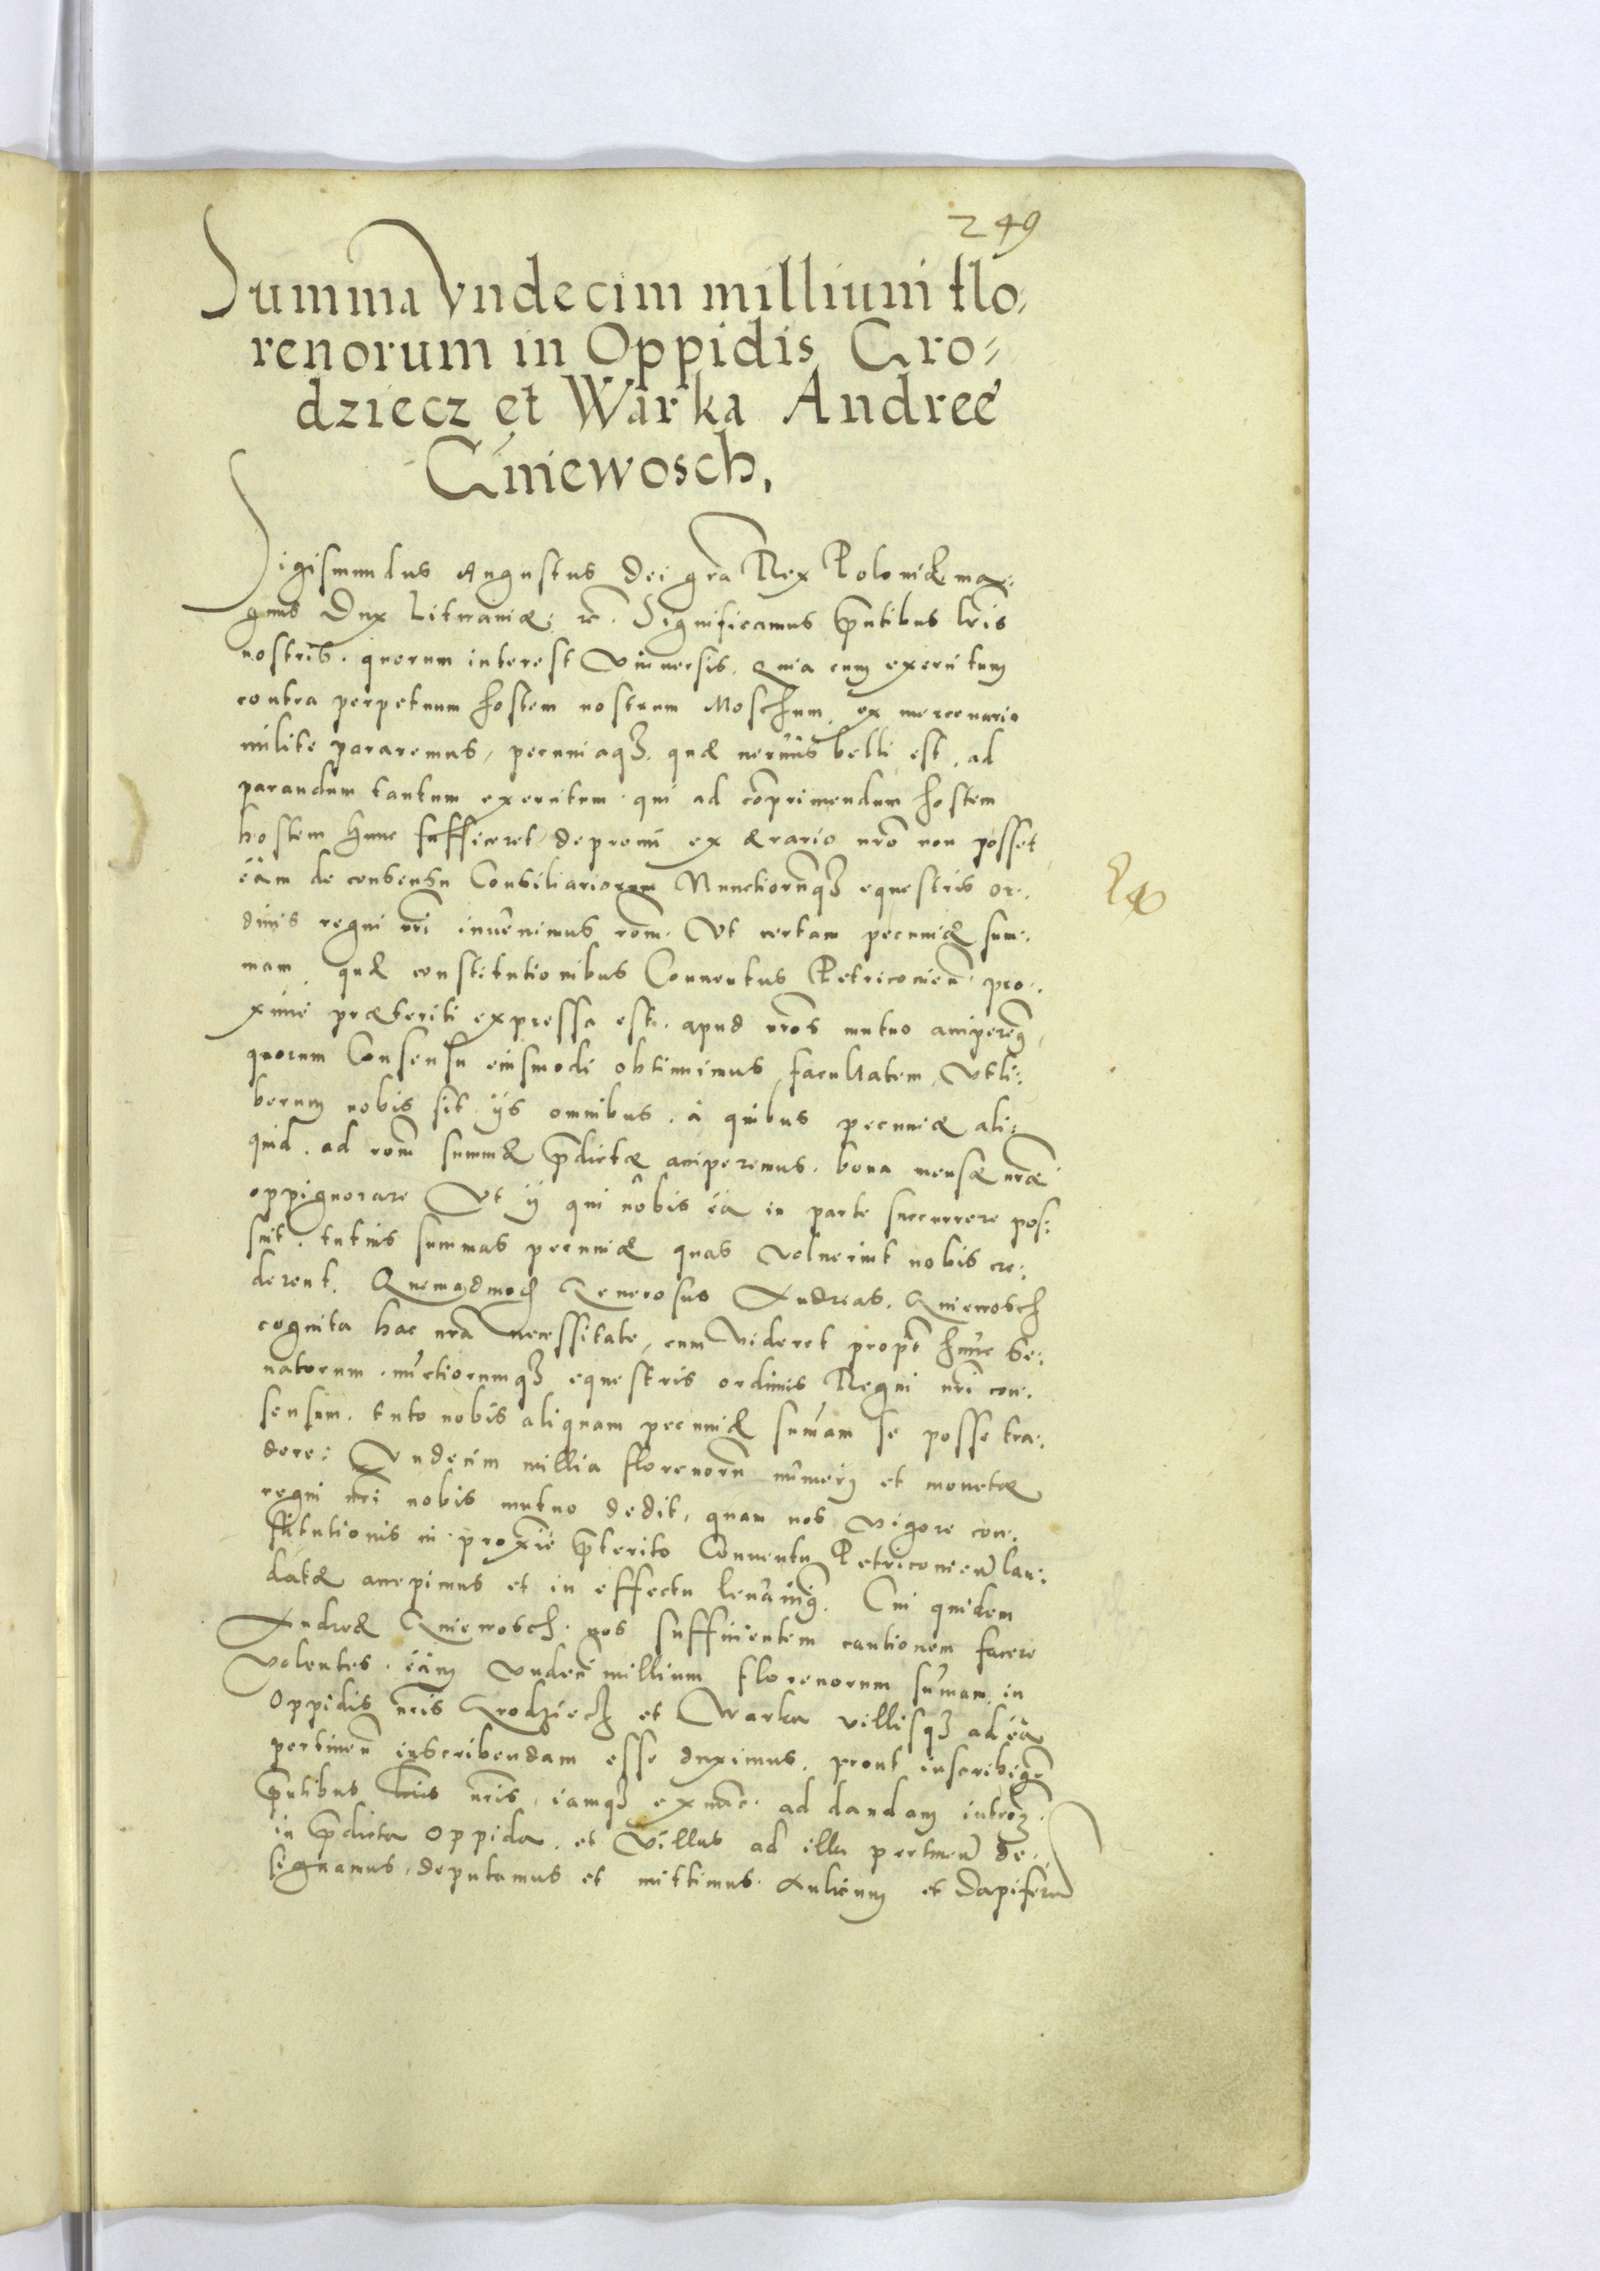 249
Summa Vndecim millium flo,
renorum in Oppidis Gro=
dziecz et Warka Andreé
Gniewosch,
Sigismundus Augustus Dei gra Rex Poloniæ ma:
gnus Dux Litvaniæ; rc. Significamus pntibus lris
nostris. quorum interest Vniuersis. Quia cum exercitum
contra perpetuum hostem nostrum Moschum, ex mercenario
milite pararemus, pecuniaqʒ quæ neruus belli est, ad
parandum tantum exercitum. qui ad cōprimendum hostem
hostem hunc sufficeret, depromi ex ærario nro non posset
eam de consensu Consiliariorum Nunctiorūqʒ equestris or.
dinis regni nri inuenimus rōm. Vt certam pecuniæ sum:
mam quæ constitutionibus Conuentus Petricouien. pro.
xime præteriti expressa est. apud nros mutuo acciperem,
quorum Consensu eiusmodi obtinuimus facultatem, Vt li:
berum nobis sit. ijs omnibus. a quibus pecuniæ ali:
quid. ad rōm summæ pdictæ acciperemus. bona mensæ nræ
oppignorare Vt ij qui nobis ea in parte succurrere pos:
sint. tutius summas pecuniæ quas voluerint nobis cre:
derent. Quemadmod Generosus Andreas. Gniewosch
cognita hac nra necessitate, cum Videret propt hunc Se:
natorum. nūctiorumqʒ equestris ordinis Regni nri con.
sensum. tuto nobis aliquam pecuniæ sum̄am se posse tra:
dere: Vndecim millia florenorū numeri et monetæ
regni nri nobis mutuo dedit, quam nos vigore con:
stitutionis in proxīe pterito Conuentu Petricouien lau:
datæ accepimus et in effectu leuauimus. Cui quidem
Andreæ Gniewosch. nos sufficientem cautionem facere
Volentes. eam vndeci millium florenorum sūmam. in
Oppidis nris Grodziecz et Warka villisqʒ ad ea
pertinen inscribendam esse duximus. prout inscribim
pntibus lris nris, iamqʒ ex nūc. ad dandam introm.
in pdicta Oppida. et Villas ad illa pertinen de:
signamus, deputamus et mittimus. Aulicum et Dapiferū